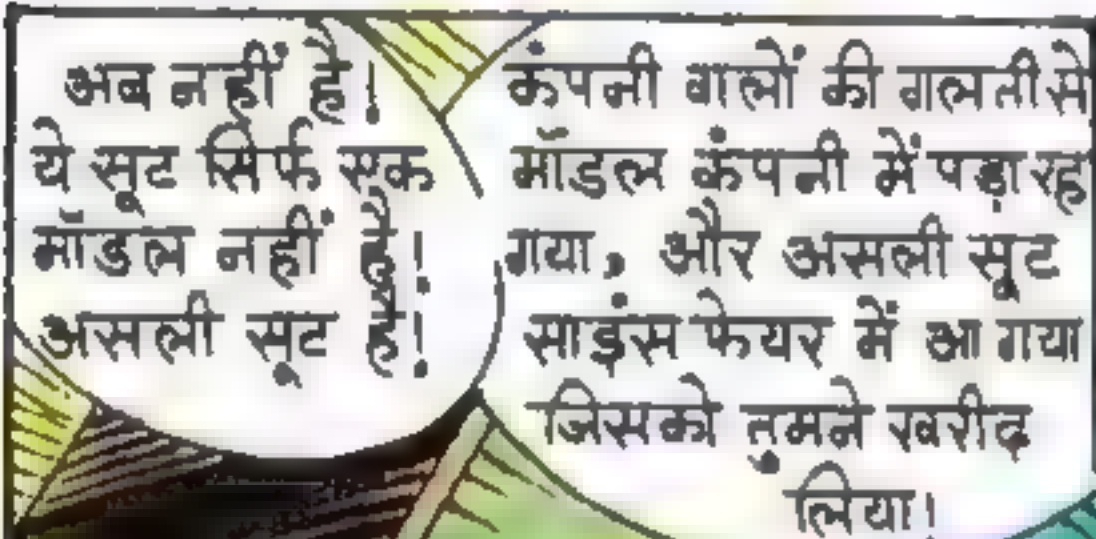 अब नहीं है।
ये सूट सिर्फ एक
मॉडल नहीं है!
असली सूट है!
कंपनी वालों की गलती से
मॉडल कंपनी में पड़ा रह
गया, और असली सूट
साइंस फेयर में आ गया
जिसको तुमने खरीद
लिया।